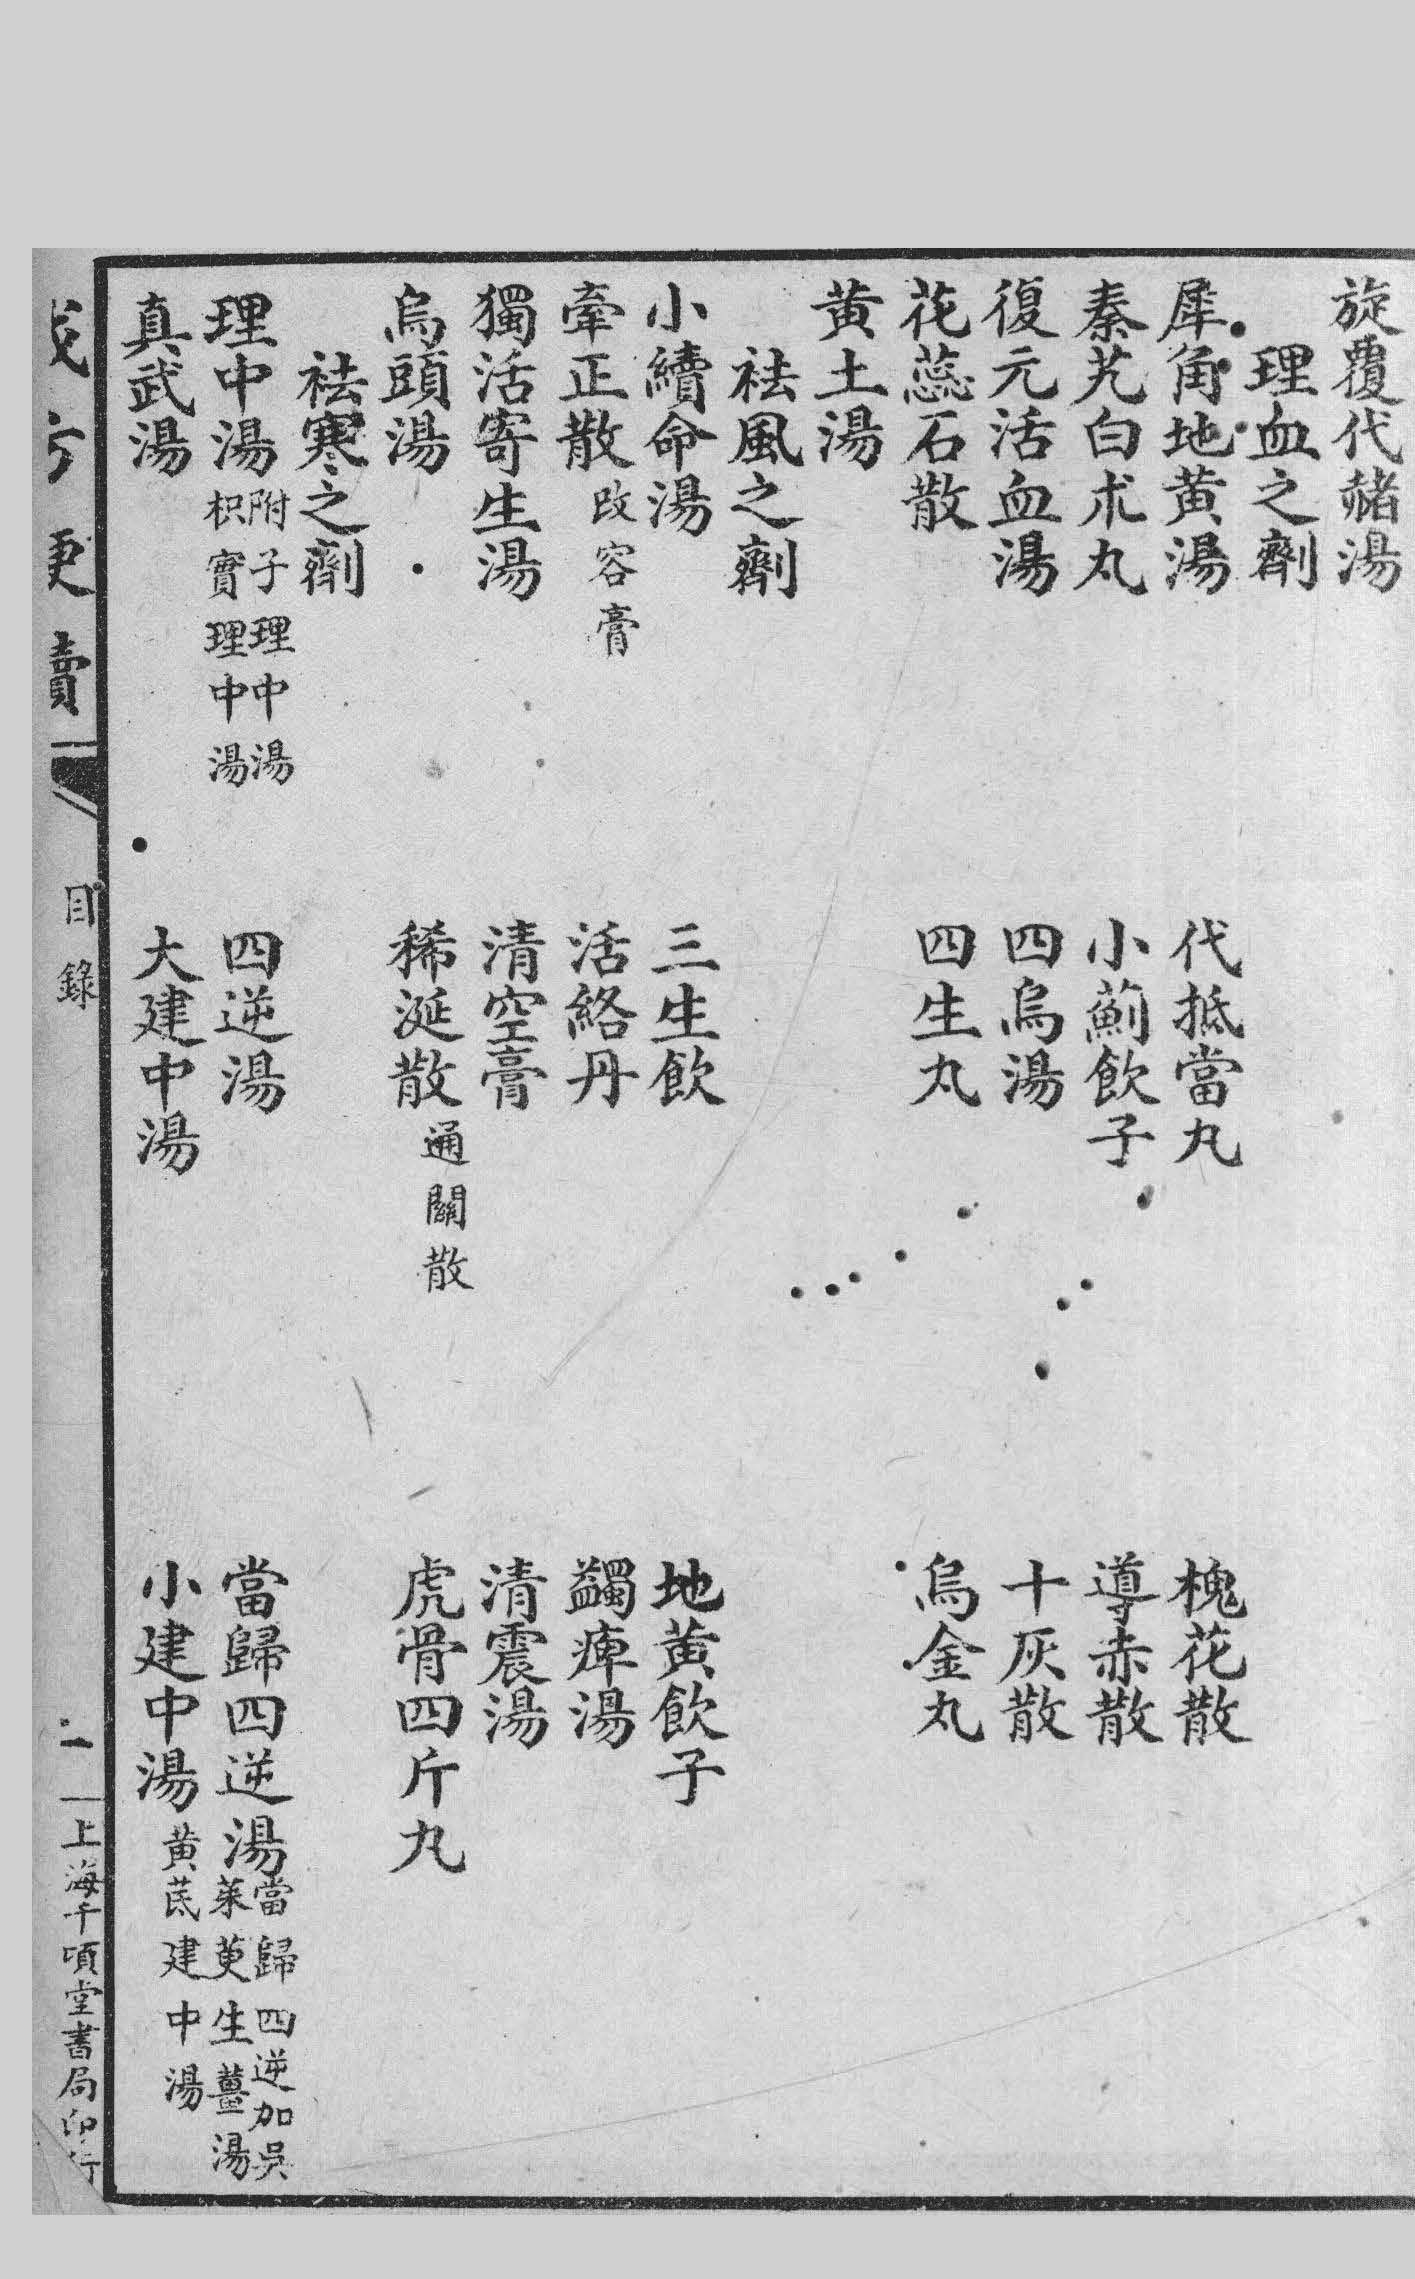 旋覆代赭湯
理血之劑
犀角地黄湯　代抵當丸　槐花散
秦艽白朮丸　小薊飲子　導赤散
復元活血湯　四烏湯　十灰散
花蕊石散　四生丸　烏金丸
黄土湯
祛風之劑
小續命湯　三生飲　地黄飲子
牽正散　改容膏　活絡丹　蠲痺湯
獨活寄生湯　清空膏　清震湯
烏頭湯　稀涎散　通關散　虎骨四斤丸
祛寒之劑
理中湯　附子理中湯　枳實理中湯　四逆湯　當歸四逆湯　當歸四逆加吳茱萸生薑湯
真武湯　大建中湯　小建中湯　黄芪建中湯
目錄　上海千頃堂書局印行